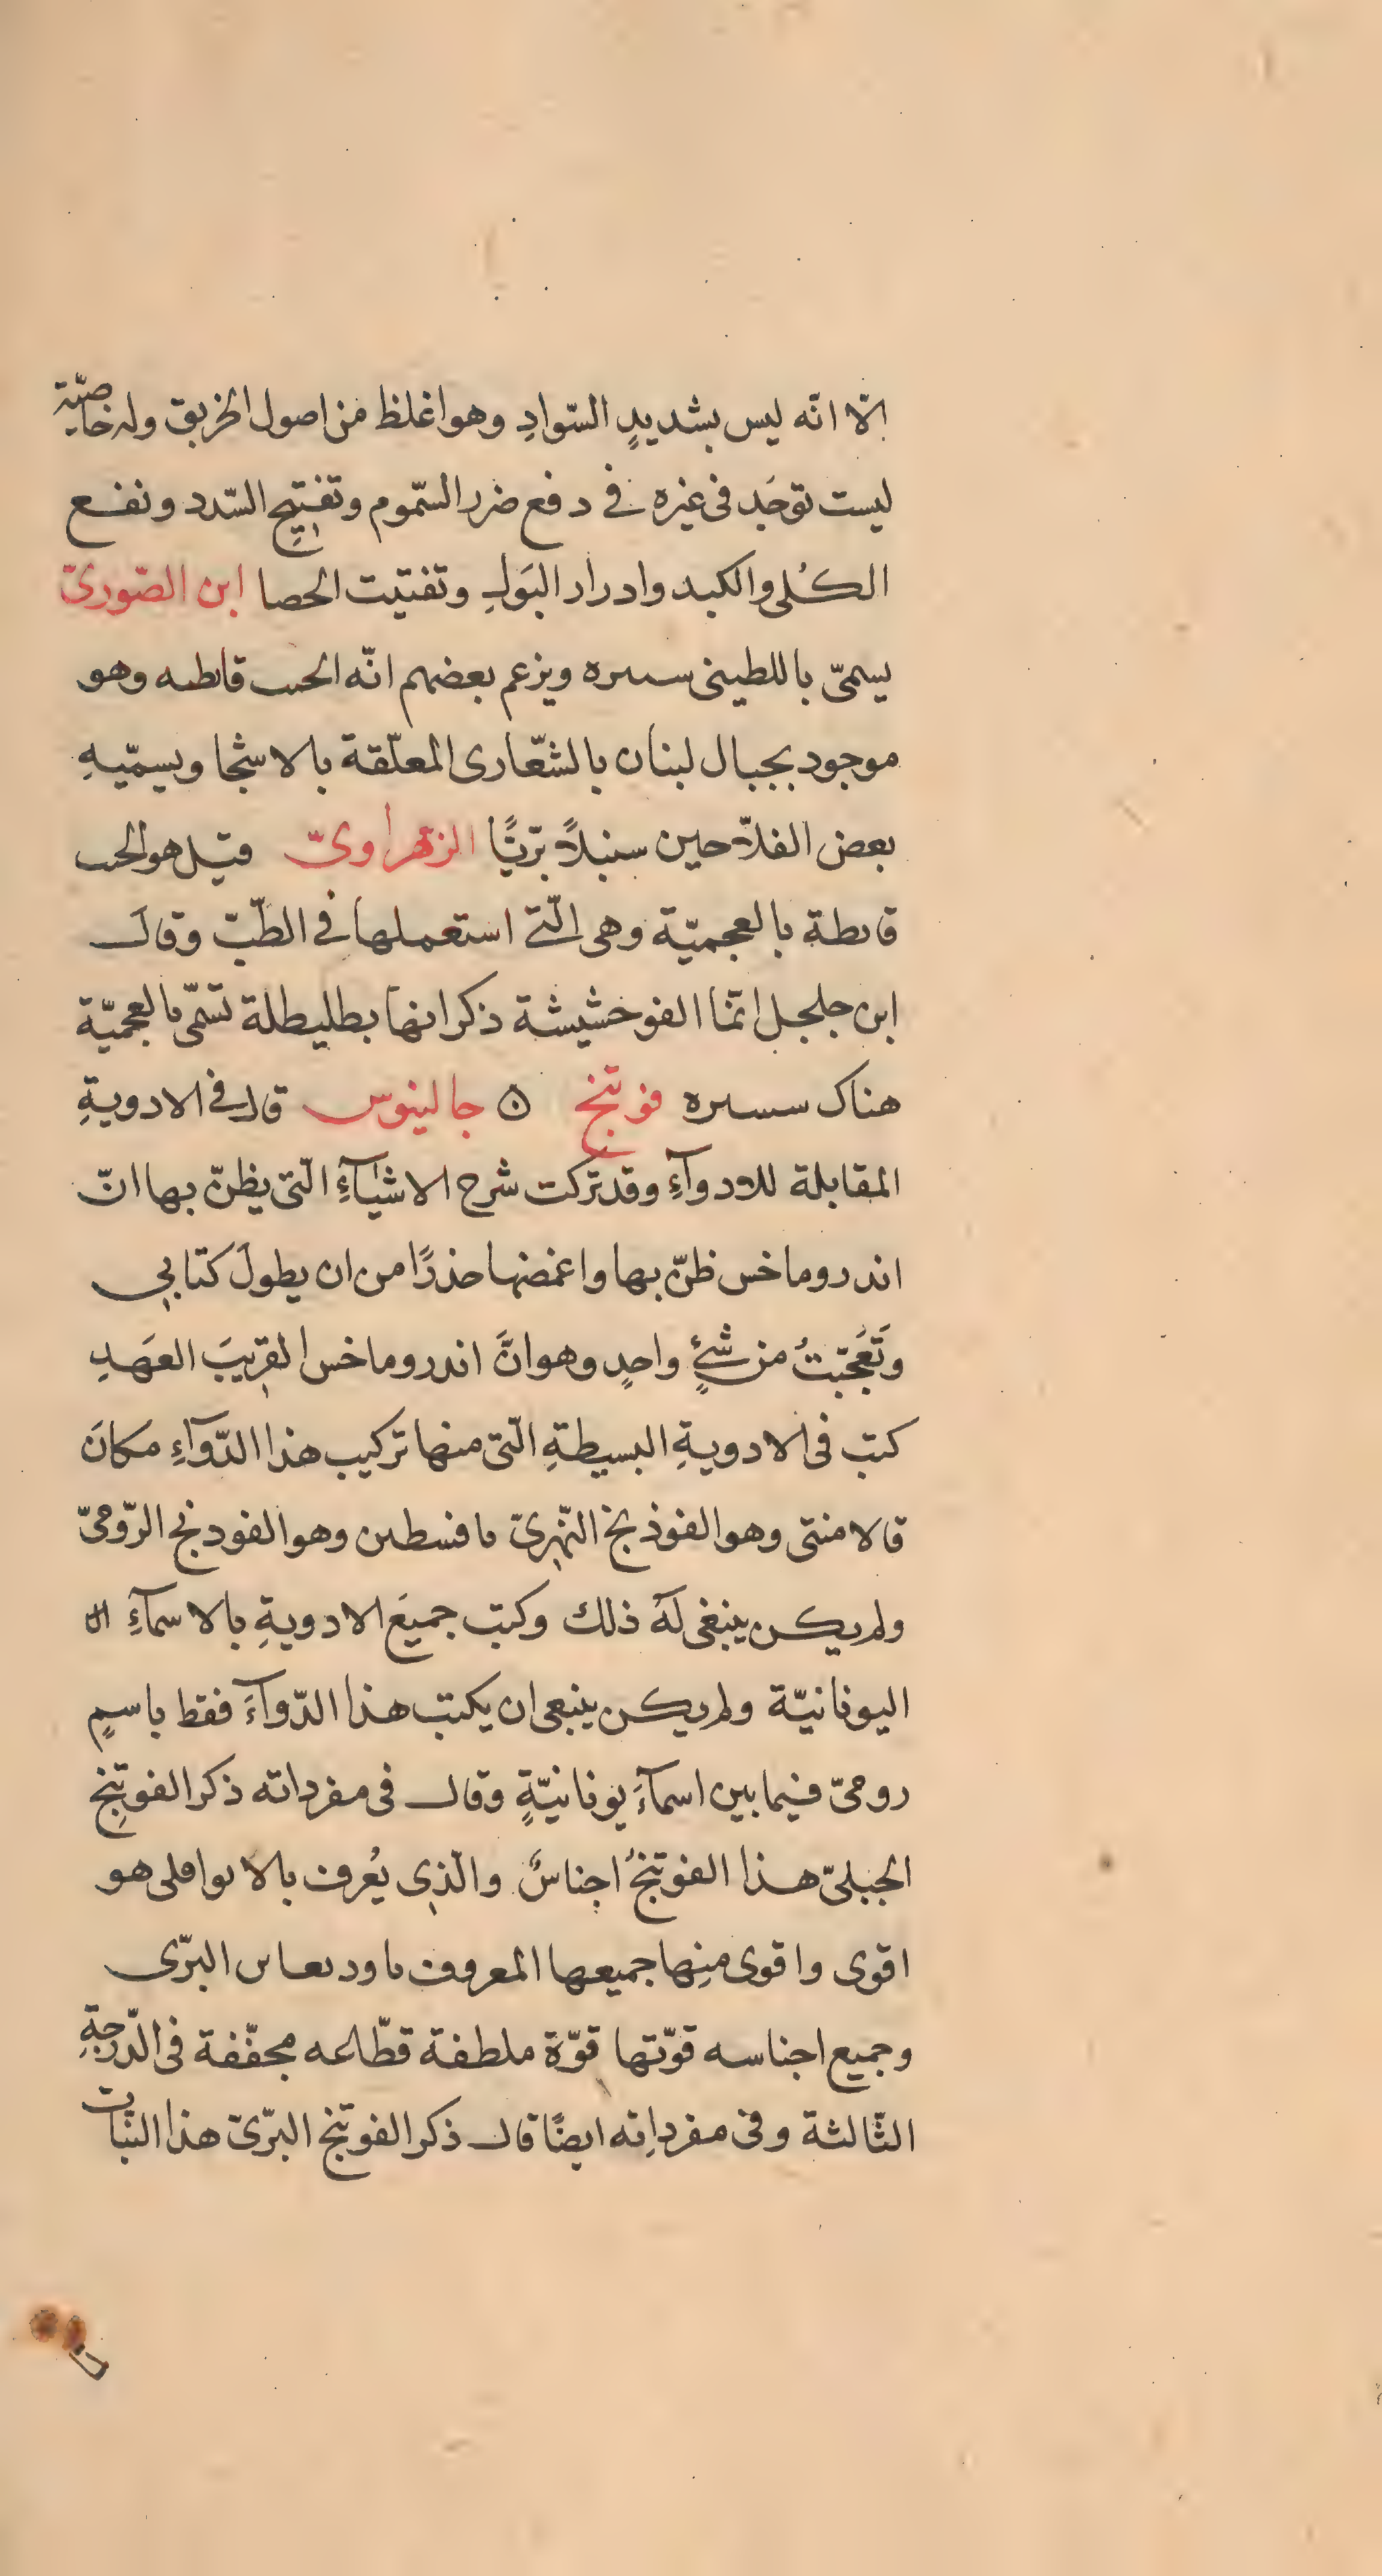 الّا انّه ليس بشديدٍ السّوادِ وهو اغلظ من اصول الخربق وله خاصّيّة
ليست توجَد فى غيره فى دفع ضرر السّموم وتفتيحِ السّدد ونفع
الكُلى والكبد وادرار البَولِ وتفتيت الحصا ابن الصّورىّ
يسمّى باللطينى سسره ويزعم بعضهم انّه الحب قاطىه وهو
موجود بجبال لبنان بالشّعارى المعلّقة بالاشجا ويسمّيهِ
بعض الفلّاحين سنبلاً برّيًّا الزهراوىّ قيل هو الحب
قاىطة بالعجميّة وهى الّتى استعملها فى الطّبّ وقالَ
ابن جلجل انّما الفو حشيشة ذكر انها بطليطلة تسمّى بالعجميّة
هناك سسىره فوتنج ۞ جالينوس قال فى الادويةِ
المقابلة للادوآءِ وقد تركت شرح الاشيآءِ الّتى يظنّ بها انّ
اندروماخس ظنّ بها واغمضها حذرًا من ان يطولَ كتابي
وتَعَجّبتُ من شئٍ واحدٍ وهو انَّ اندروماخس القريبَ العَهدِ
كتب فى الادويةِ البسيطةِ الّتى منها تركيب هذا الدّوآءِ مكانَ
قالامنتى وهو الفوذنج النّهرىّ ىافسطىن وهو الفودنج الرّومىّ
ولم يكن ينبغى لهُ ذلك وكتب جميعَ الادويةِ بالاسمآءِ ال
اليونانيّة ولم يكن ينبعى ان يكتب هذا الدّوآءَ فقط باسمٍ
رومىّ فيما بين اسمآءَ يونانيّةٍ وقال فى مفرداته ذكر الفوتنِج
الجبلىّ هذا الفوتنجُ اجناسٌ والّذى يُعرف بالاىواملى هو
اقوى واقوى منها جميعها المعروف ىاودىعاس البرّى
وجميع اجناسه قوّتها قوّة ملطفة قطّاعه مجفّفة فى الدّرجةِ
الثّالثة وفى مفرداته ايضًا قال ذكر الفوتنج البرّىّ هذا النّبات